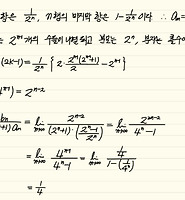 항은 \frac{1}{2^n}, n행의 마지막 항은 1-\frac{1}{2^n}이다 ∴ a_n=
는 2^{n+1} 개의 수들이 나열되고 분모는 2^n, 분자는 홀수
(2k-1) = \frac{1}{2^n} { 2·\frac{2^n(2^n+1)}{2} - 2^n }
4^{n}) = 2^{n-2}
\frac{b_n}{+1) a_n} = lim_{n→∞} \frac{2^{n-2}}{(2^n+1)·(\frac{2^n-1}{2^n})} = lim_{n→∞} \frac{2^{2n-2}}{4^n-1}
= lim_{n→∞} \frac{4^{n-1}}{4^n-1} = lim_{n→∞} \frac{\frac{1}{4}}{1-(\frac{1}{4^n})}
= \frac{1}{4}